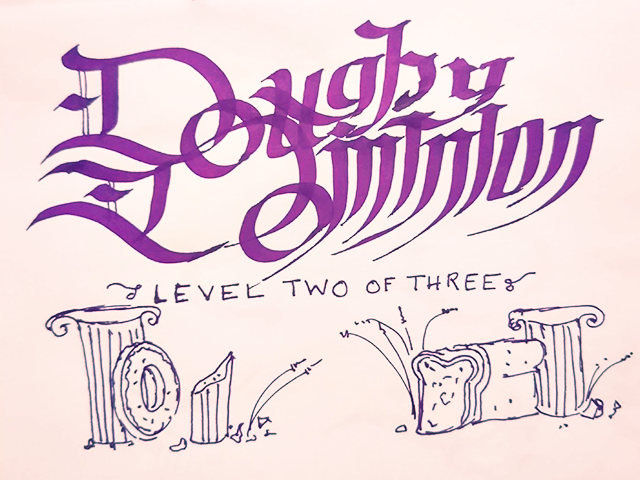 Doughy
Dominion
LEVEL TWO OF THREE